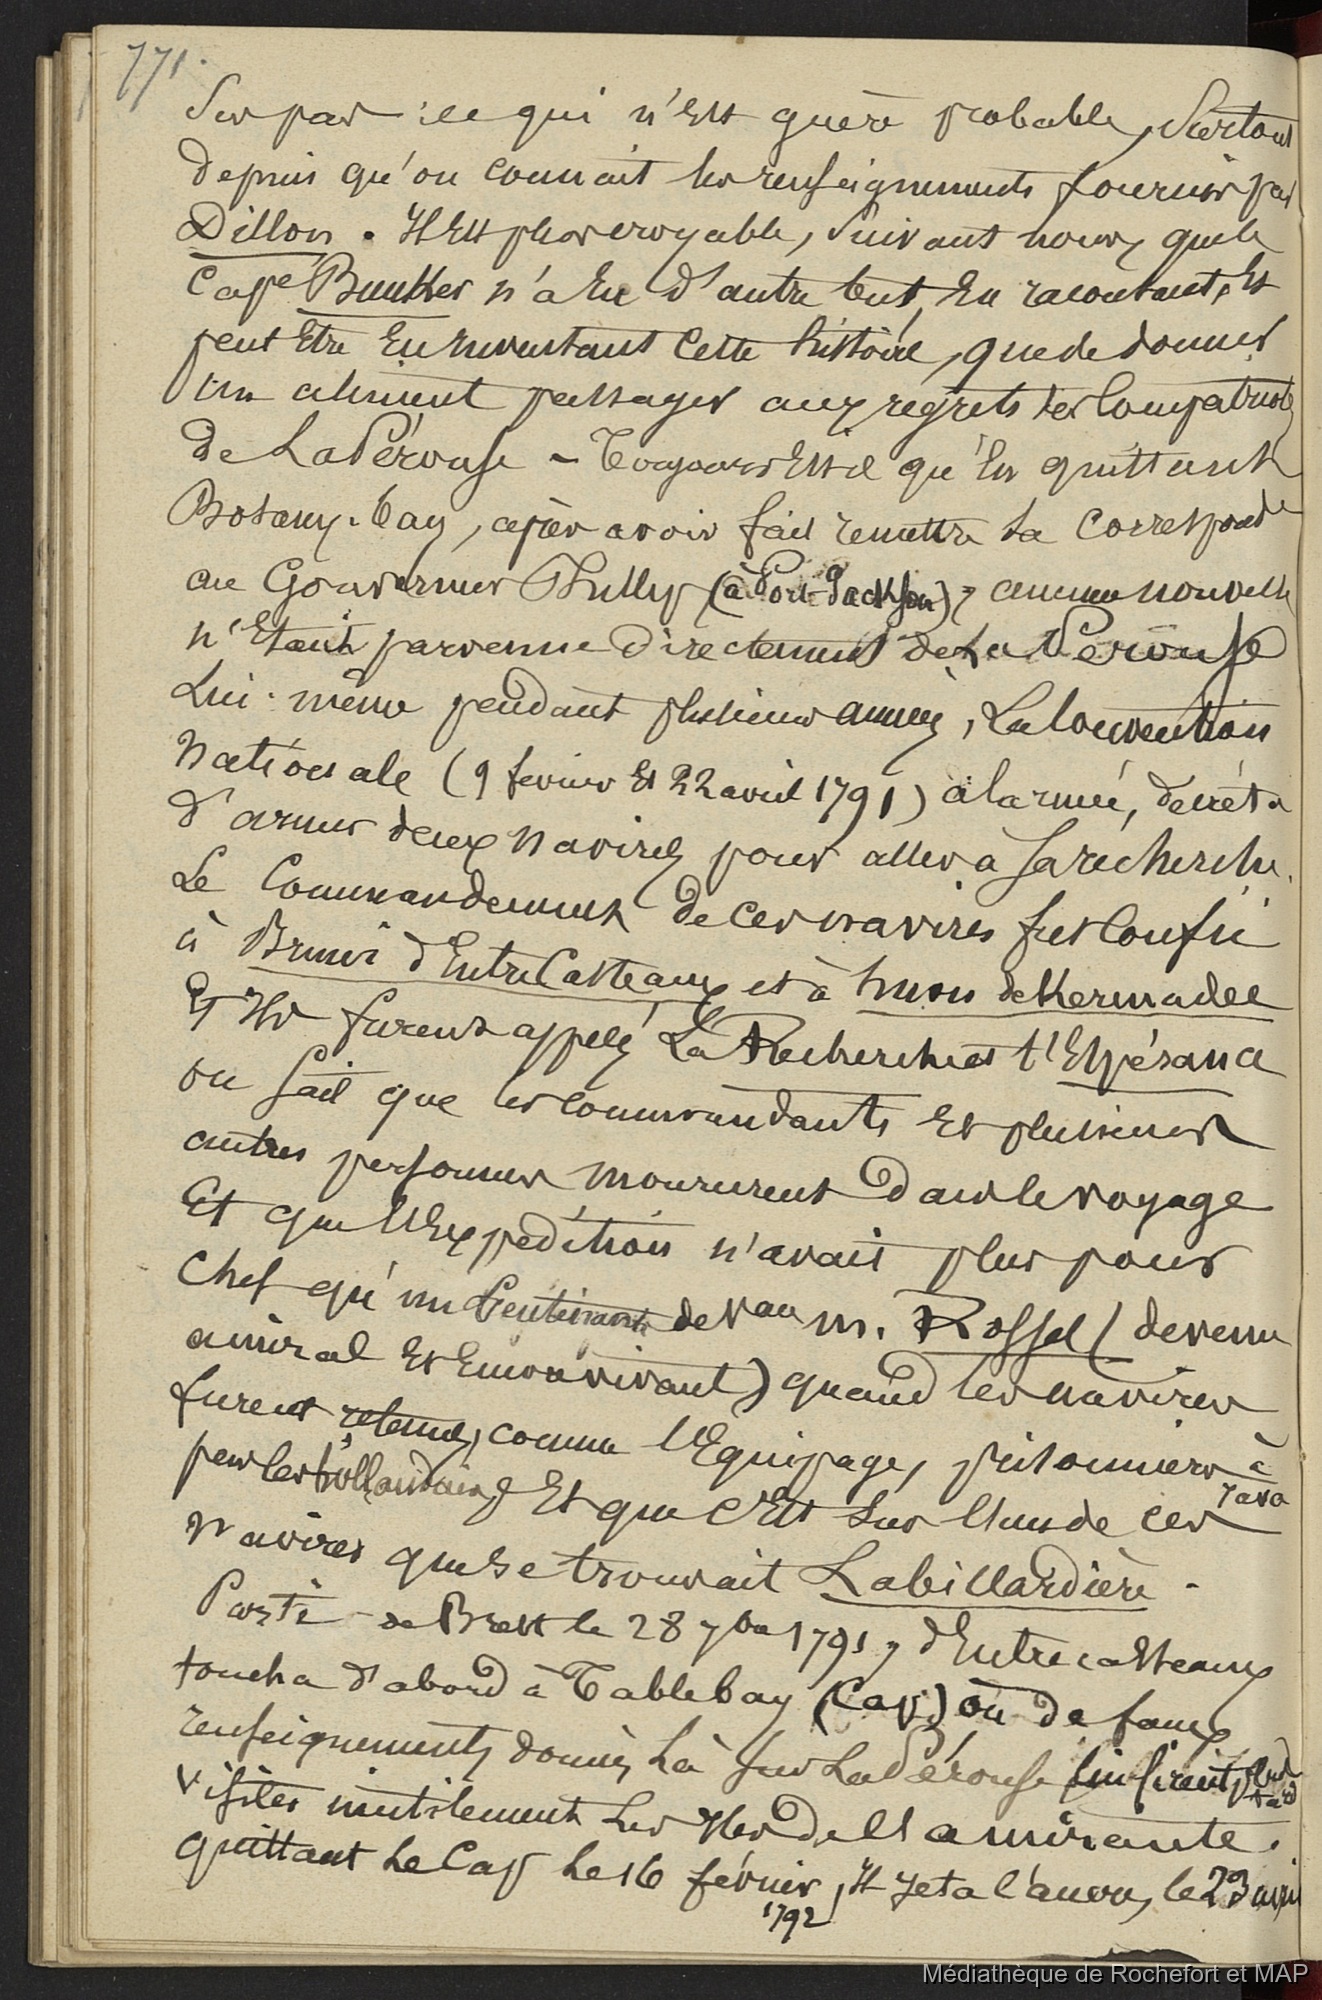 771.
Sur pas : ce qui n'est guère probable, Surtout
depuis qu'on connait les renseignements fournis par
Dillon. Il est plus croyable, suivant nous, que le
Cape Bunkker n'a eu d'autre but, en racontant, et
peut être en inventant cette histoire, que de donner
un aliment passager aux regrets des Compatriotes
de La Pérouse – Toujours est il qu'en quittant
Botany-bay, après avoir fait remettre sa Correspond
au Gouverneur Phillip (à Port-Jackson), aucune nouvelle
n'étant parvenue directement de La Pérouse
Lui-même pendant plusieurs années, La Convention
Nationale (9 fevrier et 22 avril 1791) alarmée, decréta
d'armer deux navires pour aller à sa recherche.
Le Commandement de ces navires fut confié
à Bruni d'Entre Casteaux et à huon de Kermadec
Et Ils furent appelés La Recherche et l'Espérance
on sait que les commandants et plusieurs
autres personnes moururent dans le voyage
Et que l'Expédition n'avait plus pour
Chef qu'un Lieutenant de Vau m. Rossel (devenu
amiral et encore vivant) quand les navires
furent retenus, comme l'Equipage, prisonniers à
Java
par les hollandais, et que c'est sur l'un de ces
Navires que se trouvait Labillardière.
Parti de Brest le 28 7bre 1791, d'Entrecasteaux
toucha d'abord à Table bay (Cap) où de faux
renseignements donnés là sur La Pérouse lui firent plus
tard
visiter inutilement les Iles de l'amirante.
quittant le Cap le 16 février, Il jeta l'ancre, le 23 avril
1792
Médiathèque de Rochefort et MAP